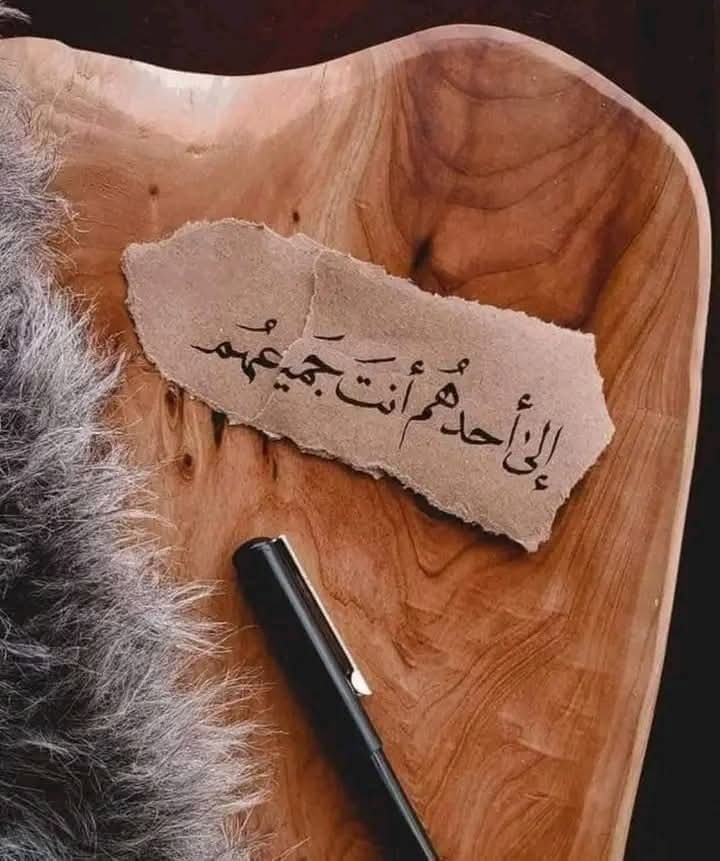 إلى أحدهُم أنتَ جَميعهُم